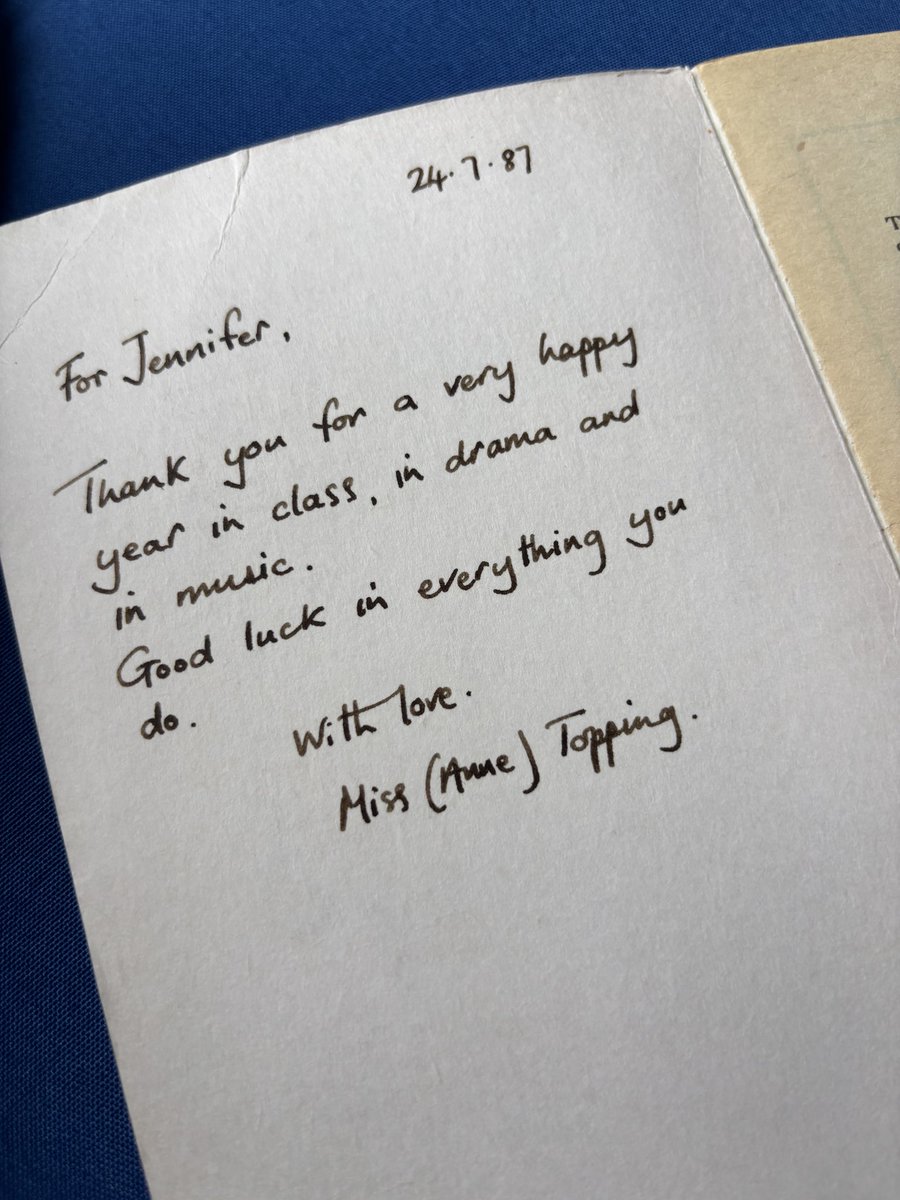 24.7.87
For Jennifer,
Thank you for a very happy
year in class, in drama and
in music.
Good luck in everything you
do.
With love.
Miss (Anne) Topping.